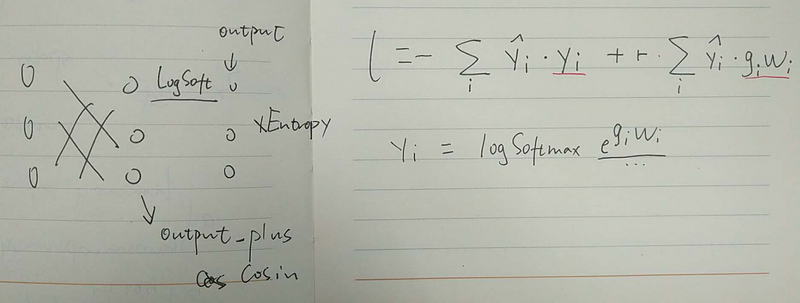 output
LogSoft
xEntropy
output_plus
Cosin
l = - ∑ᵢ ŷᵢ · yᵢ + r · ∑ᵢ ŷᵢ · gᵢwᵢ
yᵢ = logSoftmax e^gᵢwᵢ
...